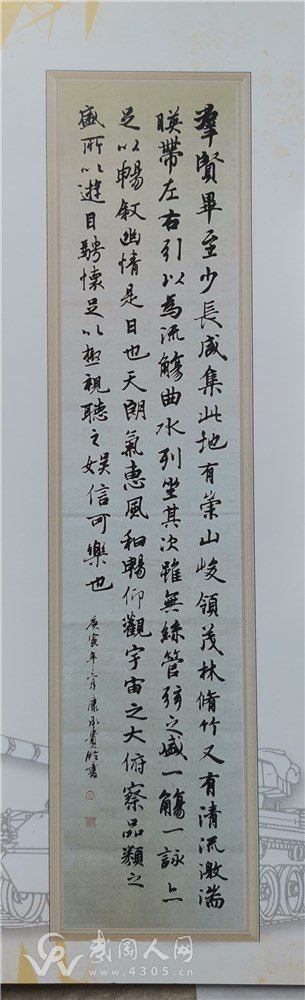 羣賢畢至少長咸集此地有崇山峻領茂林脩竹又有清流激湍
暎帶左右引以為流觴曲水列坐其次雖無絲管弦之盛一觴一詠亦
足以暢敘幽情是日也天朗氣惠風和暢仰觀宇宙之大俯察品類之
盛所以遊目騁懷足以極視聽之娛信可樂也
庚寅年
書
武冈人网
www.4305.cn